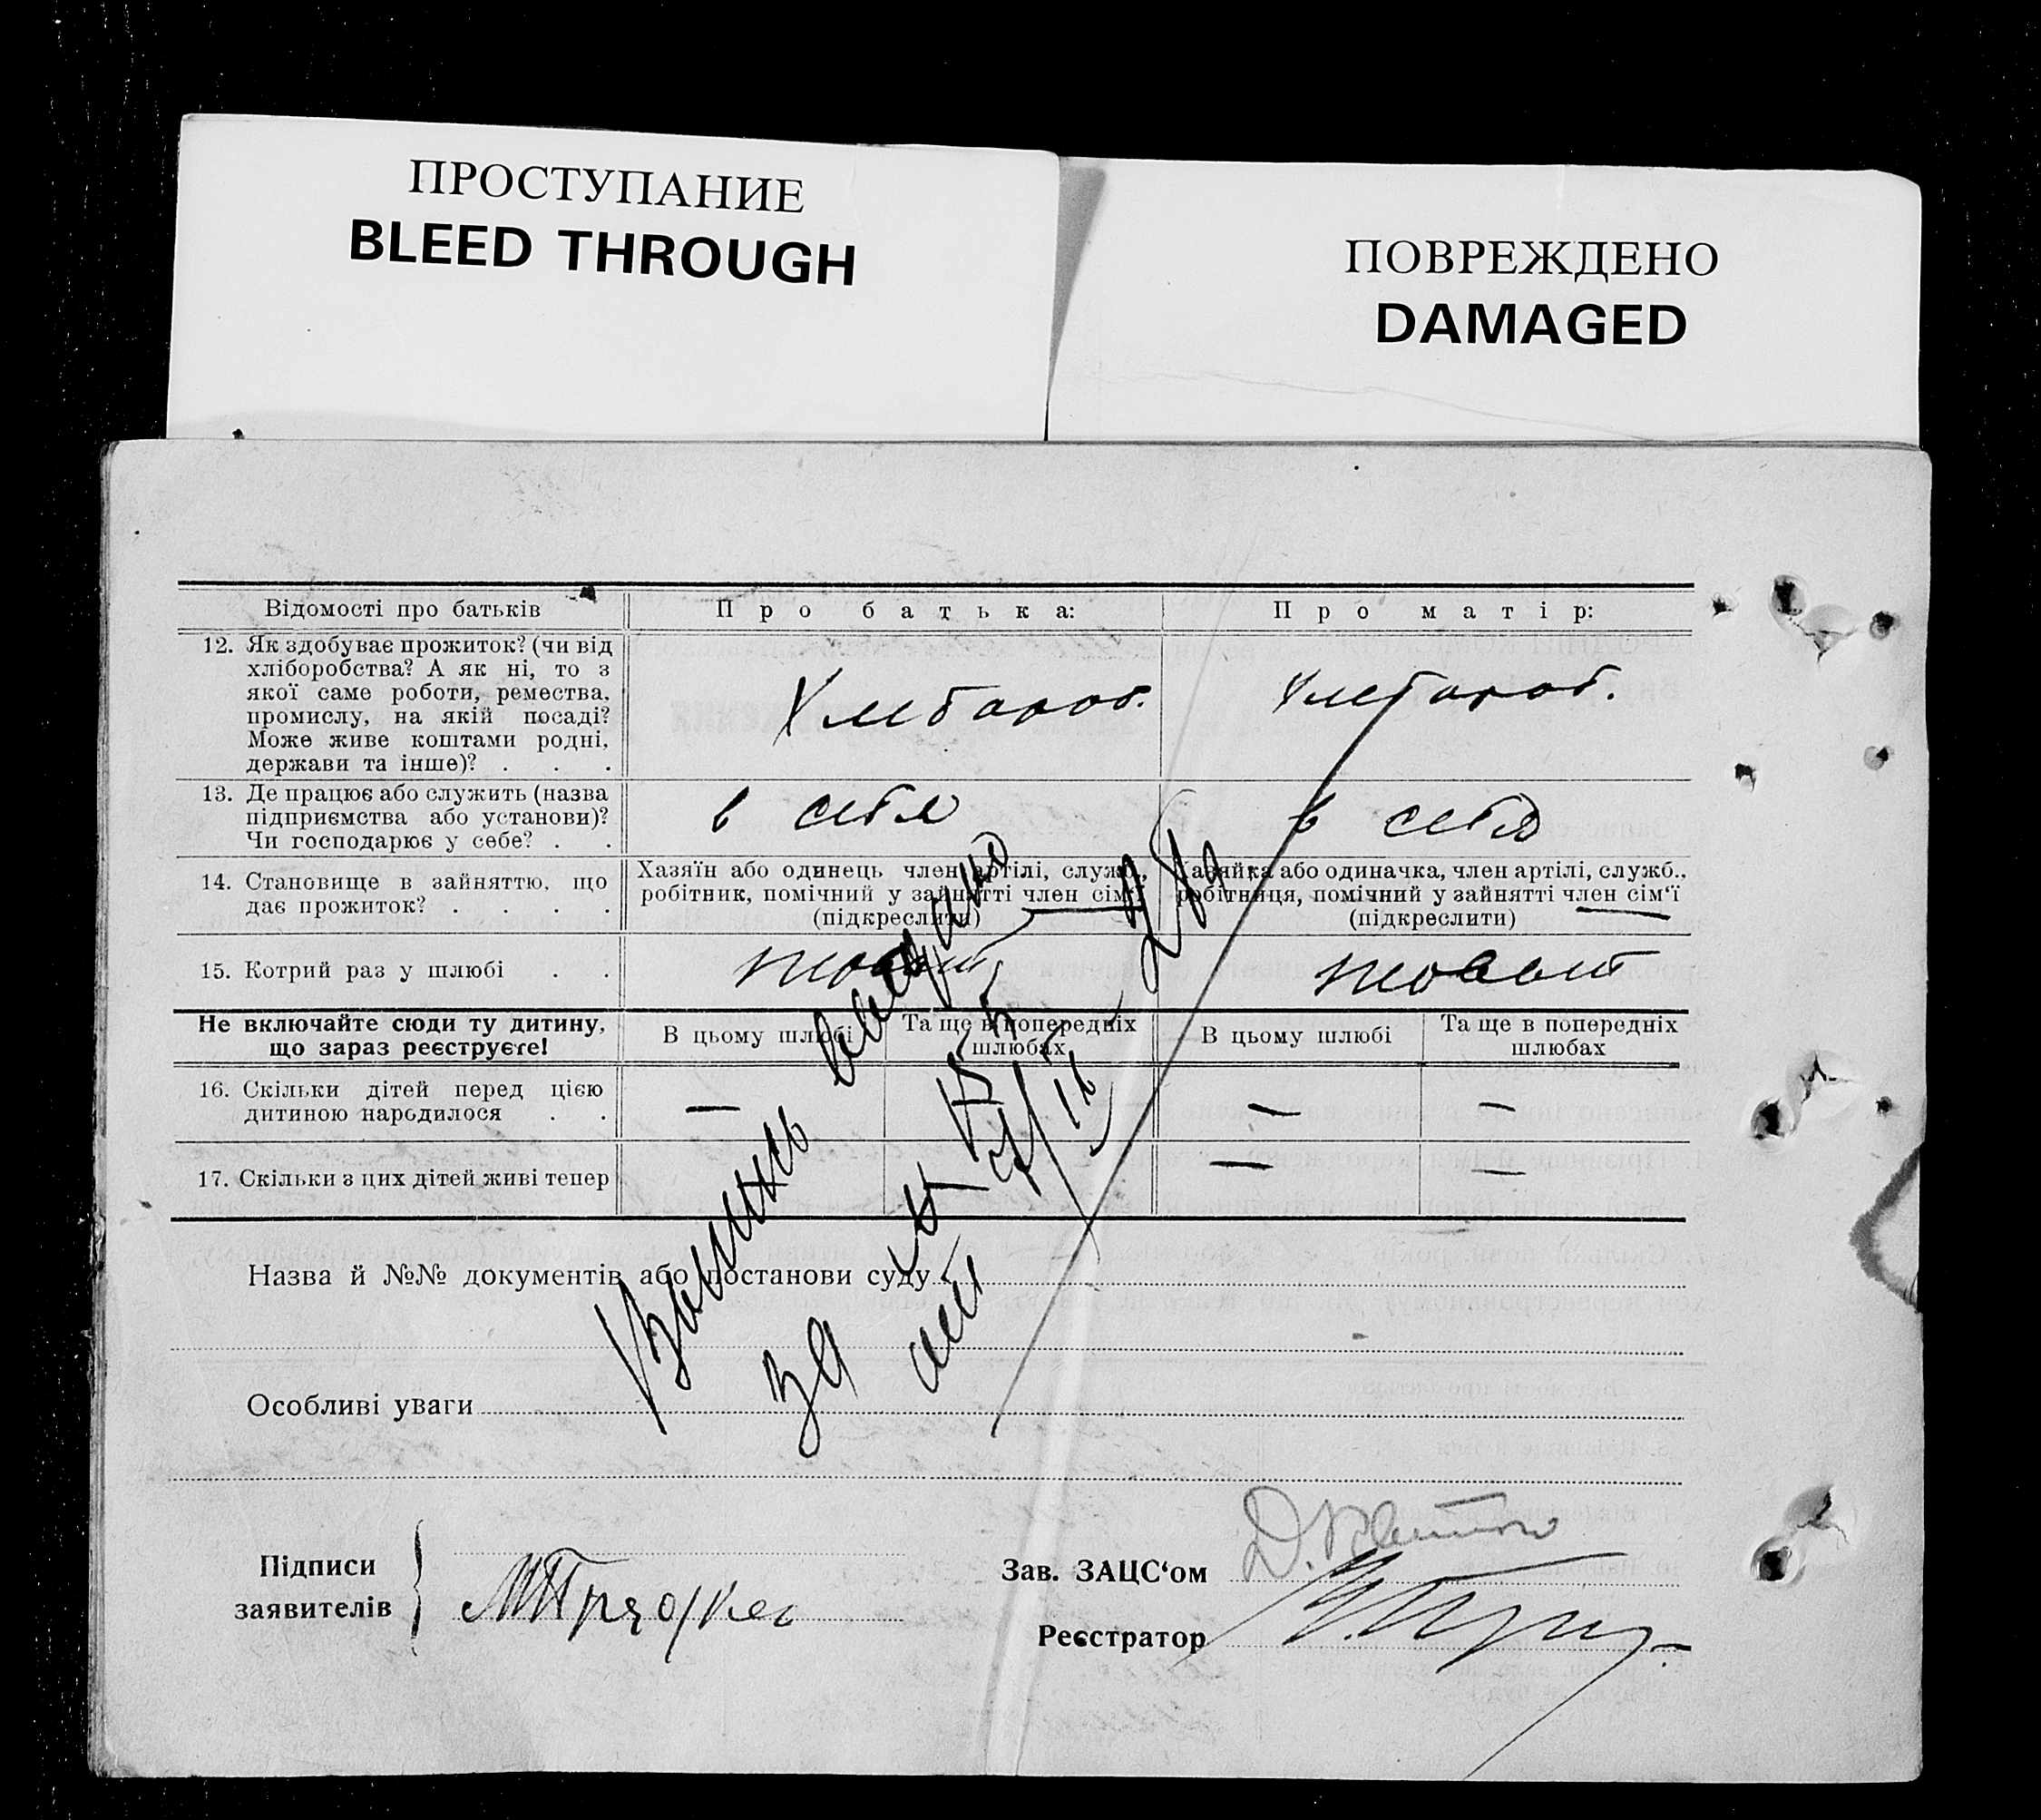 ПРОСТУПАНИЕ
BLEED THROUGH
ПОВРЕЖДЕНО
DAMAGED
Відомості про батьків
Про батька:
Про матір:
12. Як здобуває прожиток? (чи від
хліборобства? А як ні, то з
якої саме роботи, ремества,
промислу, на якій посаді?
Може живе коштами родні,
держави та інше)? . . .
Хлебороб.
Хлебороб.
13. Де працює або служить (назва
підприємства або установи)?
Чи господарює у себе? . .
в себя
в себя
14. Становище в зайняттю, що
дає прожиток? . . . .
Хазяїн або одинець член артілі, служб.,
робітник, помічний у зайнятті член сім'ї
(підкреслити)
Хазяйка або одиначка, член артілі, служб.,
робітниця, помічний у зайнятті член сім'ї
(підкреслити)
15. Котрий раз у шлюбі . .
Не включайте сюди ту дитину,
що зараз реєструєте!
В цьому шлюбі
Та ще в попередніх
шлюбах
В цьому шлюбі
Та ще в попередніх
шлюбах
16. Скільки дітей перед цією
дитиною народилося . .
— — —
17. Скільки з цих дітей живі тепер
— —
Назва й №№ документів або постанови суду
за
Особливі уваги
Підписи
заявителів
Зав. ЗАЦС'ом
Реєстратор